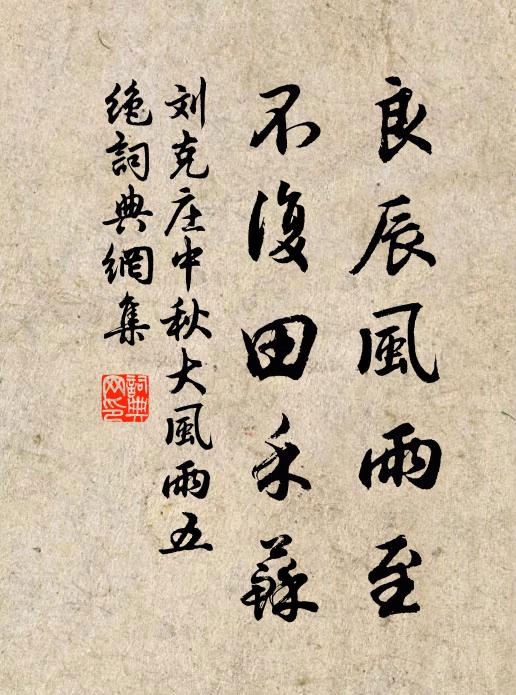 良辰風雨至
不復田禾蘇
刘克庄中秋大風雨五
絶詞典網集
詞典网印